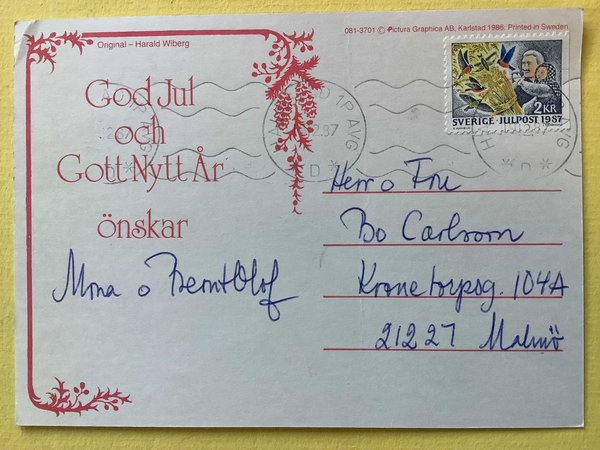 Original – Harald Wiberg
081-3701 © Pictura Graphica AB, Karlstad 1986. Printed in Sweden
God Jul
och
Gott Nytt År
önskar
Mona o BerntOlof
2 KR
SVERIGE · JULPOST 1987
1P AVG
2.87
D
Herr o Fru
Bo Carlsson
Kronetorpsg. 104A
21227 Malmö